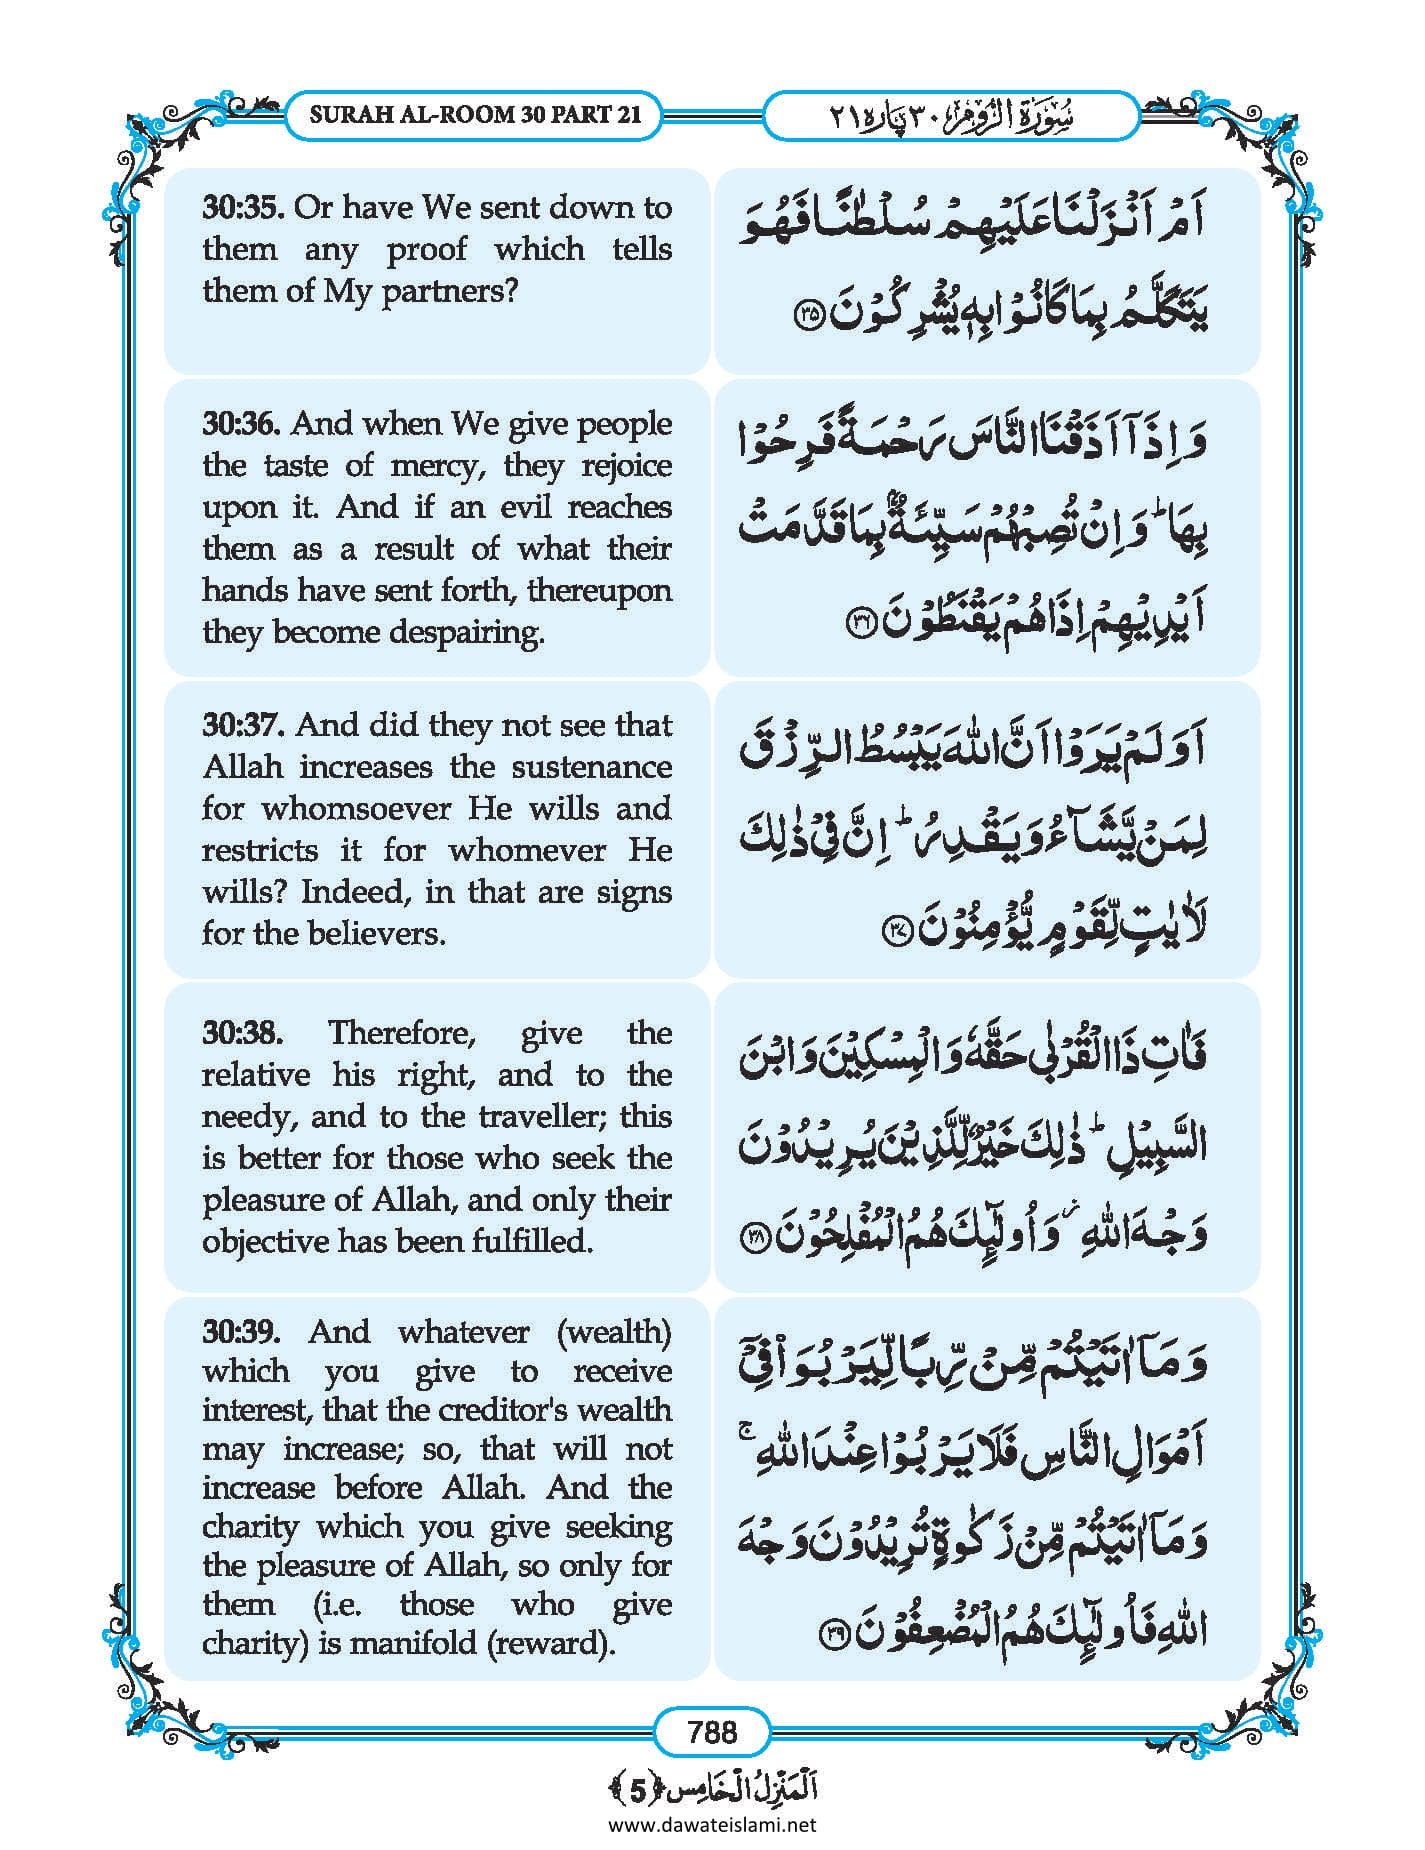 SURAH AL-ROOM 30 PART 21
سُوْرَةُ الرُّوْمِ ٣٠ پَارَہ ٢١
30:35. Or have We sent down to
them any proof which tells
them of My partners?
اَمْ اَنْزَلْنَا عَلَیْهِمْ سُلْطٰنًا فَهُوَ
یَتَكَلَّمُ بِمَا كَانُوْا بِهٖ یُشْرِكُوْنَ ﴿۳۵﴾
30:36. And when We give people
the taste of mercy, they rejoice
upon it. And if an evil reaches
them as a result of what their
hands have sent forth, thereupon
they become despairing.
وَ اِذَاۤ اَذَقْنَا النَّاسَ رَحْمَةً فَرِحُوْا
بِهَاؕ وَ اِنْ تُصِبْهُمْ سَیِّئَةٌۢ بِمَا قَدَّمَتْ
اَیْدِیْهِمْ اِذَا هُمْ یَقْنَطُوْنَ ﴿۳۶﴾
30:37. And did they not see that
Allah increases the sustenance
for whomsoever He wills and
restricts it for whomever He
wills? Indeed, in that are signs
for the believers.
اَوَ لَمْ یَرَوْا اَنَّ اللّٰهَ یَبْسُطُ الرِّزْقَ
لِمَنْ یَّشَآءُ وَ یَقْدِرُؕ اِنَّ فِیْ ذٰلِكَ
لَاٰیٰتٍ لِّقَوْمٍ یُّؤْمِنُوْنَ ﴿۳۷﴾
30:38. Therefore, give the
relative his right, and to the
needy, and to the traveller; this
is better for those who seek the
pleasure of Allah, and only their
objective has been fulfilled.
فَاٰتِ ذَا الْقُرْبٰى حَقَّهٗ وَ الْمِسْكِیْنَ وَ ابْنَ
السَّبِیْلِؕ ذٰلِكَ خَیْرٌ لِّلَّذِیْنَ یُرِیْدُوْنَ
وَجْهَ اللّٰهِ٘ وَ اُولٰٓىِٕكَ هُمُ الْمُفْلِحُوْنَ ﴿۳۸﴾
30:39. And whatever (wealth)
which you give to receive
interest, that the creditor's wealth
may increase; so, that will not
increase before Allah. And the
charity which you give seeking
the pleasure of Allah, so only for
them (i.e. those who give
charity) is manifold (reward).
وَ مَاۤ اٰتَیْتُمْ مِّنْ رِّبًا لِّیَرْبُوَاۡ فِیْۤ
اَمْوَالِ النَّاسِ فَلَا یَرْبُوْا عِنْدَ اللّٰهِۚ
وَ مَاۤ اٰتَیْتُمْ مِّنْ زَكٰوةٍ تُرِیْدُوْنَ وَجْهَ
اللّٰهِ فَاُولٰٓىِٕكَ هُمُ الْمُضْعِفُوْنَ ﴿۳۹﴾
788
اَلْمَنْزِلُ الْخَامِس ﴿5﴾
www.dawateislami.net